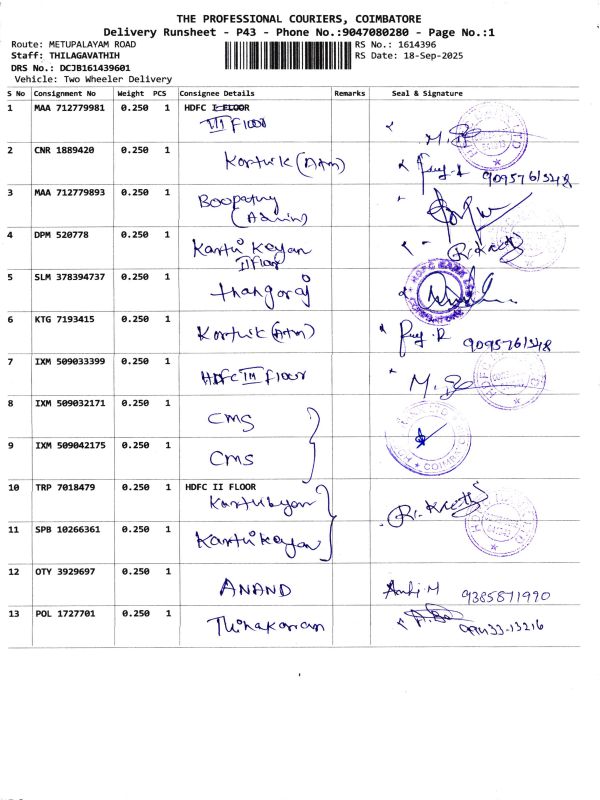 THE PROFESSIONAL COURIERS, COIMBATORE
Delivery Runsheet - P43 - Phone No.:9047080280 - Page No.:1
Route: METUPALAYAM ROAD RS No.: 1614396
Staff: THILAGAVATHIH RS Date: 18-Sep-2025
DRS No.: DCJB161439601
Vehicle: Two Wheeler Delivery
S No Consignment No Weight PCS Consignee Details Remarks Seal & Signature
1 MAA 712779981 0.250 1 HDFC I FLOOR
III Floor
2 CNR 1889420 0.250 1
Karthik (Atm) 9095761348
3 MAA 712779893 0.250 1
Boopathy
(Admin)
4 DPM 520778 0.250 1
Karthi Keyan
II Floor
5 SLM 378394737 0.250 1
thangaraj
6 KTG 7193415 0.250 1
Karthik (Atm) 9095761348
7 IXM 509033399 0.250 1
HDFC III Floor
8 IXM 509032171 0.250 1
CMS
9 IXM 509042175 0.250 1
CMS
10 TRP 7018479 0.250 1 HDFC II FLOOR
11 SPB 10266361 0.250 1
Karthi Keyan
12 OTY 3929697 0.250 1
ANAND 9385871990
13 POL 1727701 0.250 1
Thinakaran